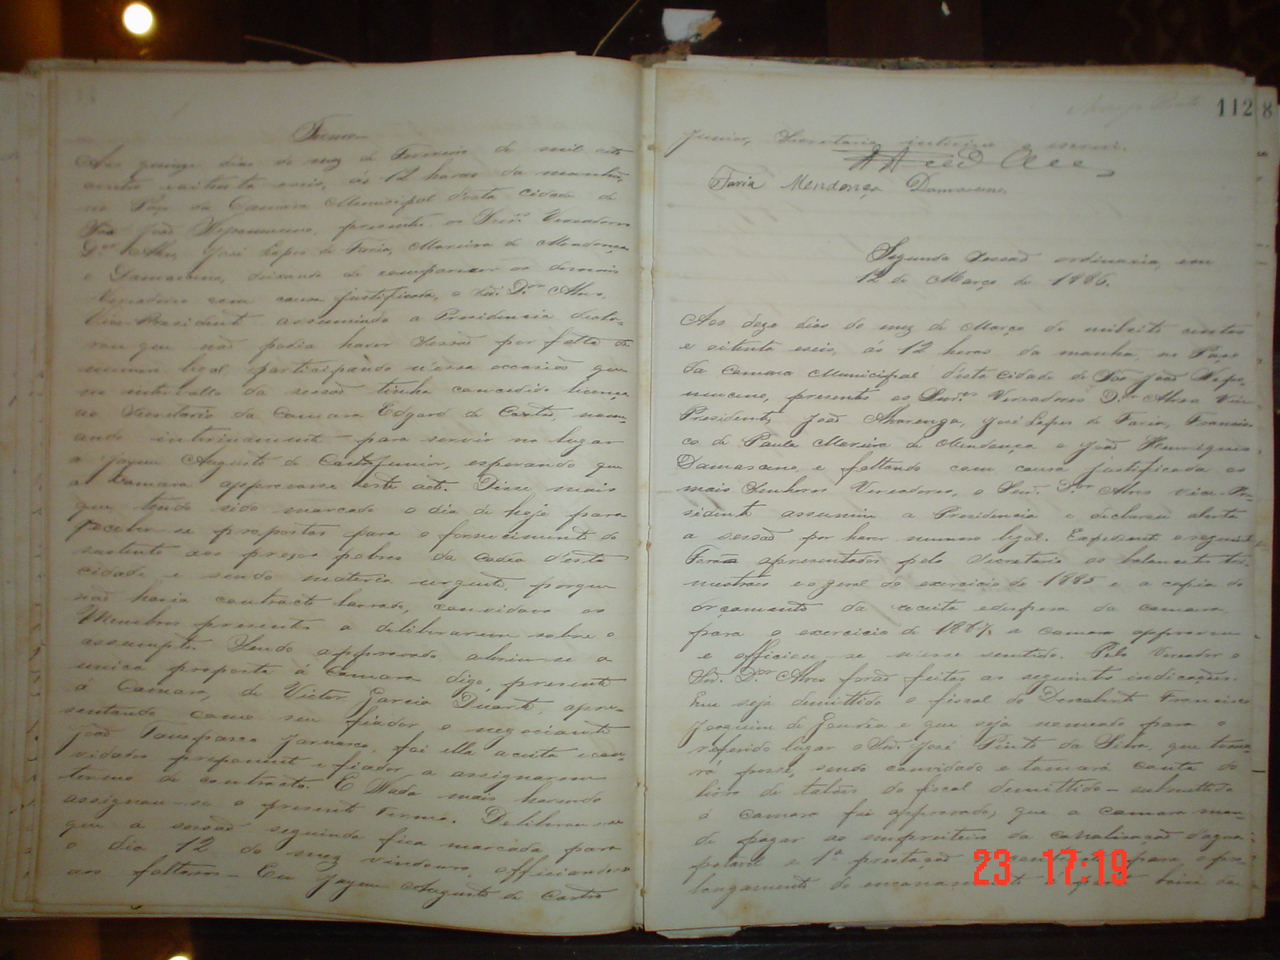 Termo
Aos quinze dias do mez de Fevereiro de mil oito
centos oitenta e seis, ás 12 horas da manhã,
no Paço da Camara Municipal desta Cidade de
São João Nepomuceno, presente os Snr.es Vereadores
D.or Alves, José Lopes de Faria, Moreira de Mendonça
e Damasceno, deixando de comparecer os demais
Vereadores com causa justificada, o Sñr. D.or Alves,
Vice-Presidente assumindo a Presidencia decla-
rou que não podia haver Sessão por falta de
numero legal participando n'essa occasião que
no intervallo da sessão tinha concedido licença
ao Secretario da Camara Edgard de Castro, nome-
ando interinamente para servir no lugar
a Jayme Augusto de Castro Junior, esperando que
a Camara approvasse este acto. Disse mais
que tendo sido marcado o dia de hoje para
receber-se propostas para o fornecimento do
sustento aos presos pobres da Cadêa desta
cidade e sendo materia urgente, porque
não havia contracto lavrado, convidava os
Membros presentes a deliberarem sobre o
assumpto. Sendo approvado, abrio-se a
unica proposta á Camara digo presente
á Camara, de Victor Garcia Duarte, apre-
sentando como seu fiador o negociante
João, foi ella aceita e con-
vidados proponente e fiador a assignarem
termo de contracto. E Nada mais havendo
assignou-se o presente termo. Deliberou-se
que a sessão seguinte fica marcada para
o dia 12 do mez vindouro, officiando-se
aos faltosos - Eu Jayme Augusto de Castro
112
8
Junior, Secretario interino o escrevi.
Faria Mendonça Damasceno
Segunda sessão ordinaria, em
12 de Março de 1886.
Aos doze dias do mez de Março de mil oito centos
e oitenta e seis, ás 12 horas da manhã, no Paço
da Camara Municipal desta Cidade de São João Nepo-
muceno, presente os Snr.es Vereadores D.or Alves Vice
Presidente, João Alvarenga, José Lopes de Faria, Francis-
co de Paula Moreira de Mendonça e João Henriques
Damasceno, e faltando com causa justificada os
mais Senhores Vereadores, o Senr. D.or Alves vice-Pre-
sidente assumiu a Presidencia e declarou aberta
a sessão por haver numero legal. Expediente o seguinte
Forão apresentados pelo Secretario os balancetes tri-
mestraes e o geral do exercicio de 1885 e a copia do
orçamento da receita e despesa da Camara
para o exercicio de 1887, a camara approvou
e officiou-se n'esse sentido. Pelo Vereador o
Sñr. D.or Alves forão feitas as seguintes indicações.
Que seja demittido o fiscal do Descoberto Francisco
Joaquim de Gouvêa e que seja nomeado para o
referido lugar o Sñr. José Pinto da Silva, que toma-
rá posse, sendo convidado e tomará conta do
livro de talões do fiscal demittido - submettido
á Camara foi approvado; que a camara man-
de pagar ao empreiteiro da canalisação d'agua
potavel a 1ª prestação para o pro-
longamento do encanamento
23 17:19